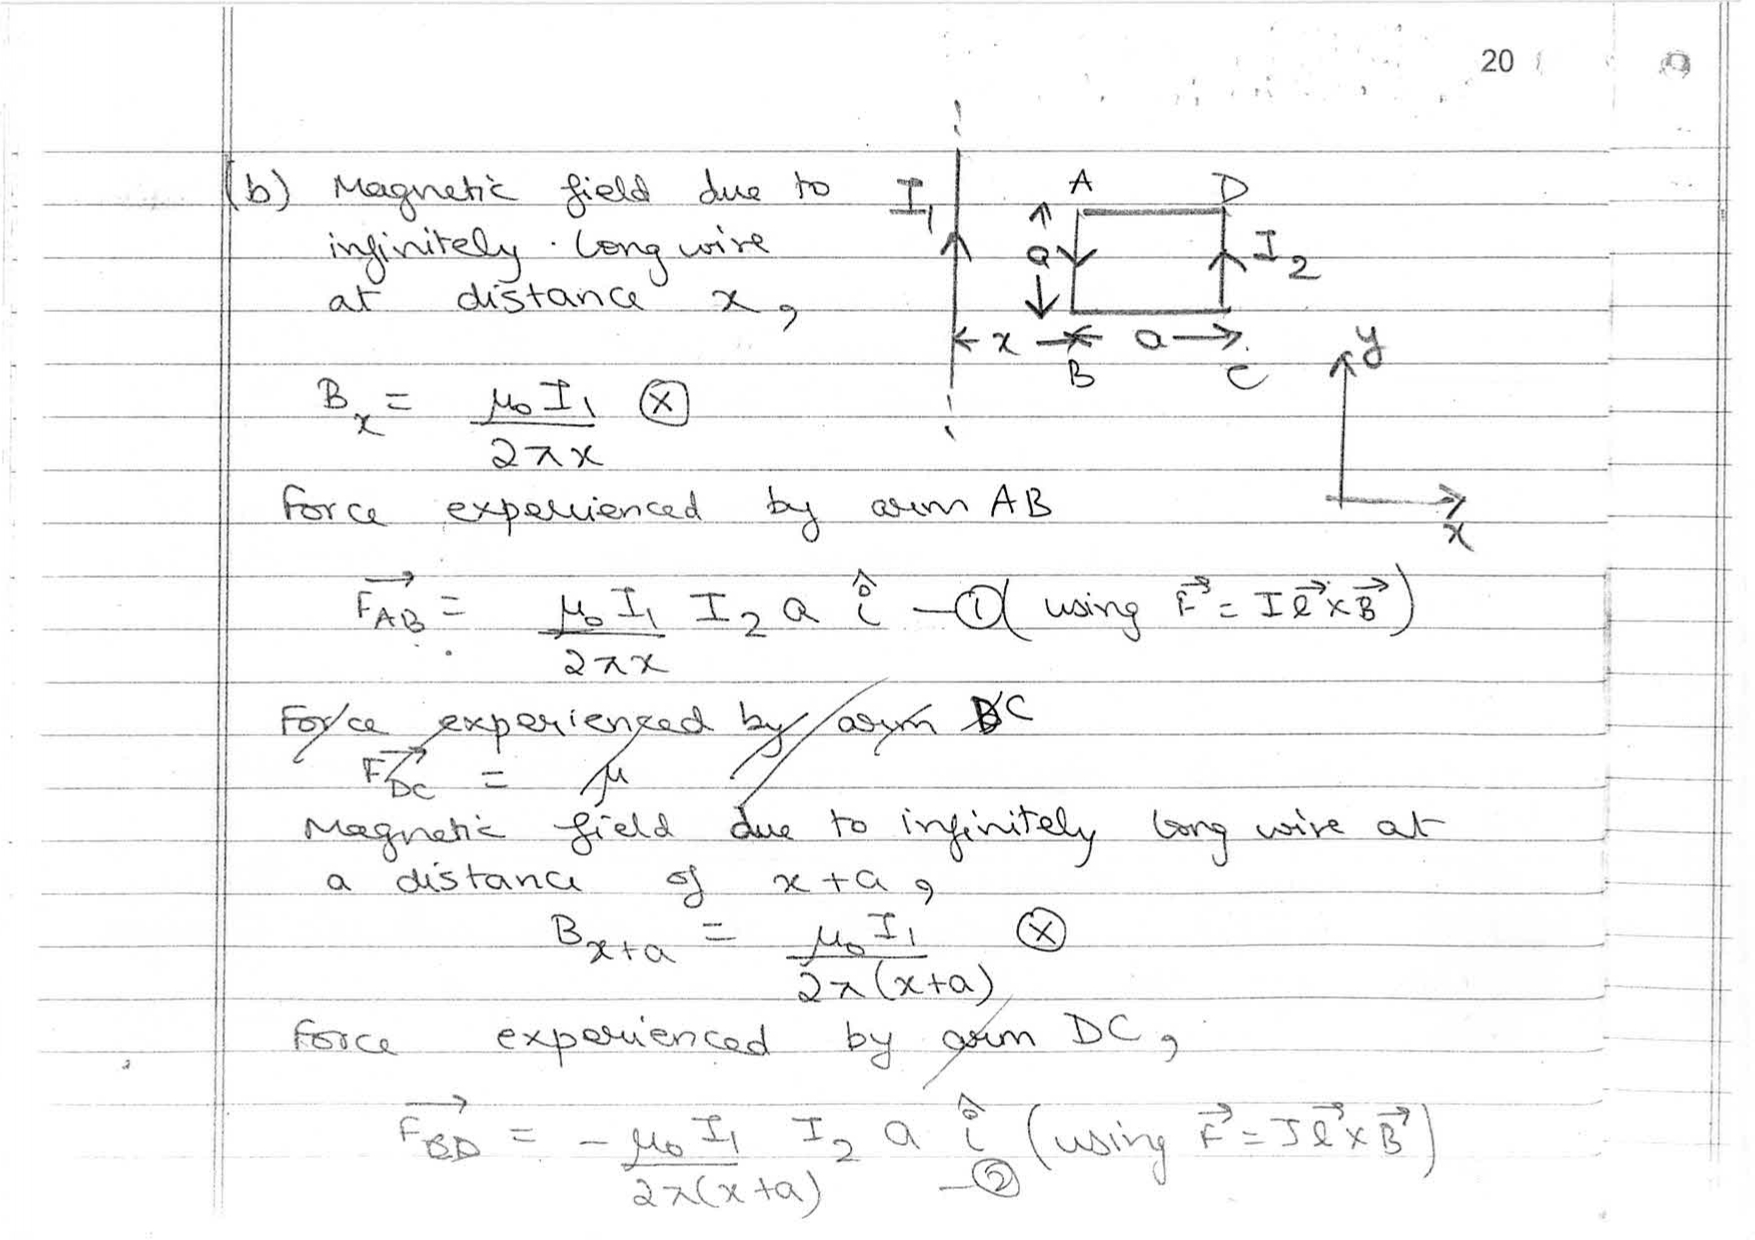 20
(b) Magnetic field due to
infinitely long wire
at distance x,
I₁
A D
a I₂
x a
B C
y
x
Bₓ = μ₀I₁ ⊗
2πx
Force experienced by arm AB
F⃗_AB = μ₀I₁ I₂ a î —① (using F⃗ = I l⃗ × B⃗)
2πx
Force experienced by arm DC
F⃗_DC = μ
Magnetic field due to infinitely long wire at
a distance of x+a,
B_x+a = μ₀I₁ ⊗
2π(x+a)
Force experienced by arm DC,
F⃗ = - μ₀I₁ I₂ a î (using F⃗ = I l⃗ × B⃗)
2π(x+a) —②